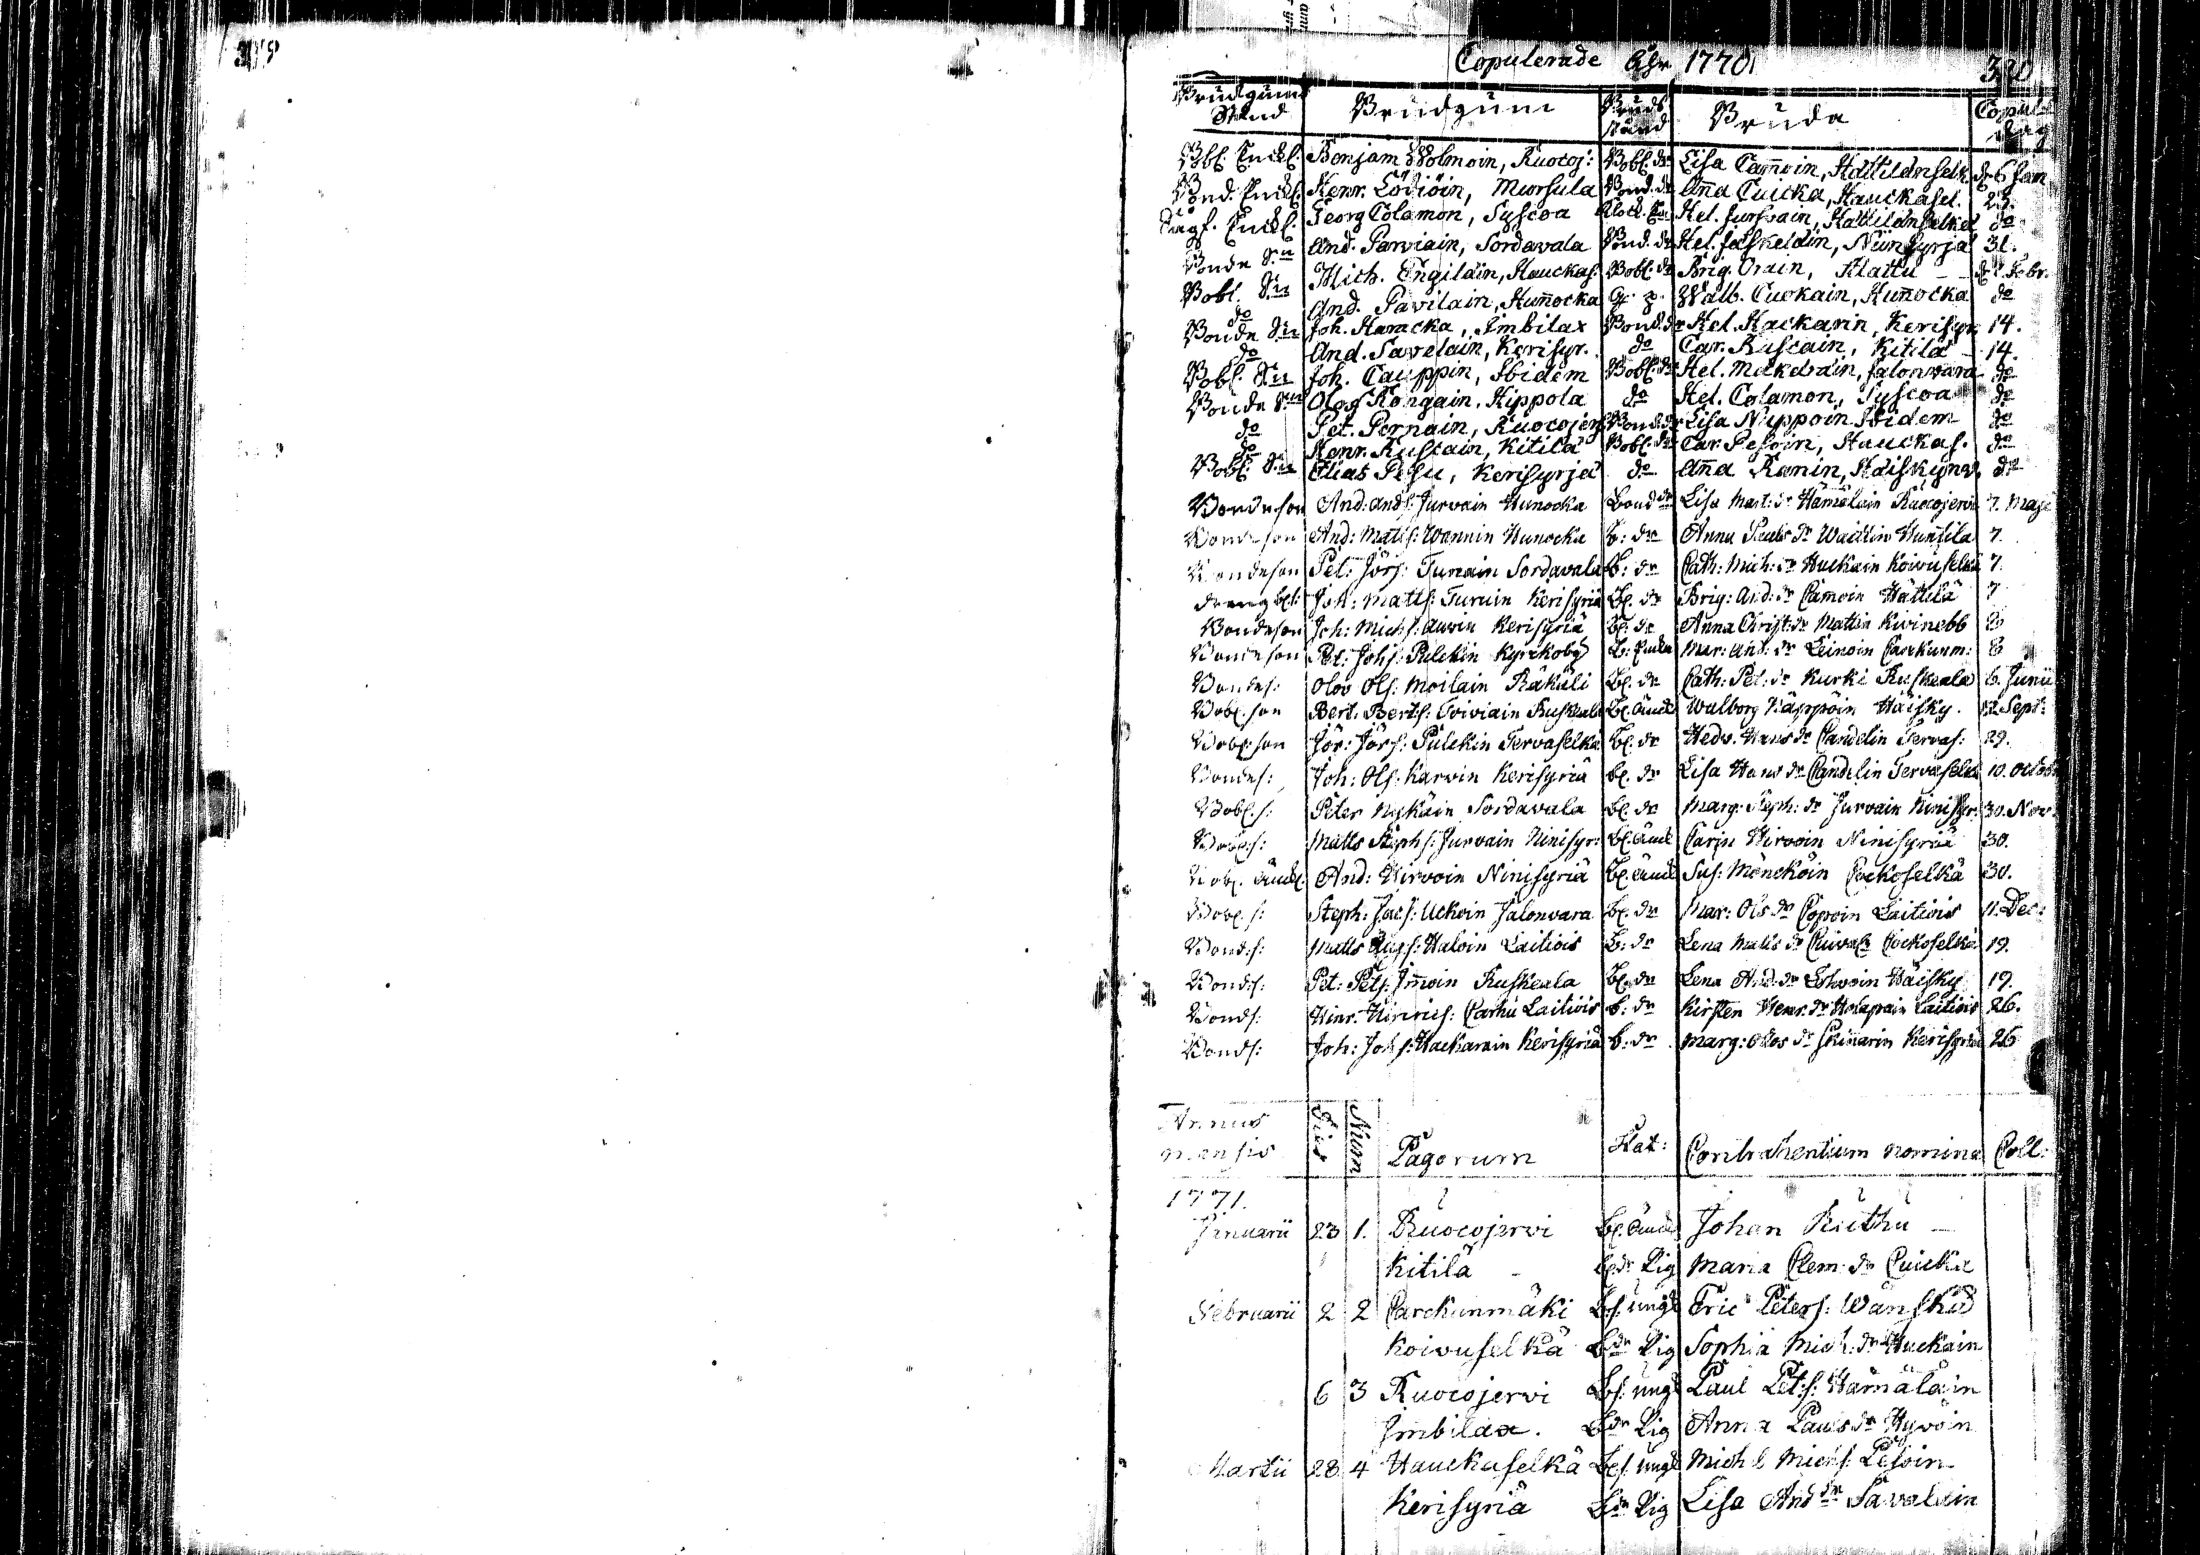 Copulerade Åhr 1770 320
Brudgum Stånd Brudgum Bruds stånd Bruda Copul: dag
Bobl. Enckl. Benjam Wolmoin, Ruocoj: Bobl. dr Lisa Tamoin, Kättilänselk. d. 6 Jan
Bond. Enckl. Henr. Lödiöin, Mursula Bond. dr Aña Cuicka, Hauckasel. 23.
Enckl. Georg Colamon, Syscoa Hel. Jurvain, Kättilänselkä do
Bonde Sn And. Parviain, Sordavala Bond. dr Hel. Jäskeläin, Niinsyrjä 31.
Bobl. Sn Mich. Engiläin, Hauckas: Bobl. dr Brig. Orain, Klattu 2 Febr.
do And. Pavilain, Huñocka Walb. Cuokain, Huñocka do
Bonde Sn Joh. Haracka, Imbilax Bond. dr Hel. Hackarin, Kerisyr. 14.
do And. Savelain, Kerisyr. do Car. Ruscain, Kitilä 14.
Bobl. Sn Joh. Cauppin, Ibidem Bobl. dr Hel. Mekeläin, Jalonvara do
Bonde Sn Olof Kongain, Kippola do Hel. Colamon, Syscoa do
do Pet. Pernain, Ruocojerf Bond. dr Lisa Nuppoin Ibidem do
do Henr. Ruscain, Kitilä Bobl. dr Car. Pesoin, Hauckas. do
Bobl. Sn Elias Pesu, Kerisyrjä do Aña Ranin, Häiskynw. do
Bondeson And: Ands: Jurvain Hunocka Bond dr Lisa Matt: dr Hämäläin Ruocojervi 7. Maji
Bondeson And: Matts: Wannin Hunocka B: dr Anna Pauls dr Waittin Hunnila 7
Bondeson Pet: Jörs: Turuain Sordavala B: dr Cath: Mich: dr Huckain Koivuselkä 7
dreng Joh: Matts: Turuin Kerisyriä Bl. dr Brig: And: dr Camoin Hättilä 7
Bondeson Joh: Michs: Auvin Kerisyriä Bl. dr Anna Christ: dr Mattin Kvinebb 8
Bondeson Pet: Johs: Pulckin Kyrckoby Mar: And: dr Leinoin Carckunm: 8
Bondes: Olov Ols: Moilain Räkäli Bl. dr Cath: Pet: dr Kurki Ruskeala 6. Junii
Bobl. son Bert: Berts: Toiviain Ruskeala Bl. Änck Walborg Käppöin Häisky. 12. Sept:
Bobl. son Jör: Jörs: Pulckin Tervaselkä Bl. dr Hedv. Hans dr Candelin Tervas: 29.
Bondes: Joh: Ols: Karvin Kerisyriä Bl. dr Lisa Hans dr Candelin Tervaselkä 10. Octob
Bobl. s: Peter Nykäin Sordavala Bl. dr Marg: Steph: dr Jurvain Ninisyr: 30. Nov.
Matts Stephs: Jurvain Ninisyr: Bl. Änck Carin Hirvoin Ninisyriä 30.
Bobl. Änckl. And: Hirvoin Ninisyriä Bl. Änck Sus: Möncköin Cockoselkä 30.
Bobl. s: Steph: Jacs: Uckoin Jalonvara Bl. dr Mar: Ols dr Copoin Laitiois 11. Dec:
Bonds: Matts Haloin Laitiois B: dr Lena Matts dr Cockoselkä 19.
Bonds: Pet: Pets: Immoin Ruskeala Bl. dr Lena And. dr Häisky 19.
Bonds: Hinr. Hinrics: Carhu Laitiois B: dr Kirsten Henr. dr Holapain Laitiois 26.
Bonds: Joh: Johs: Hackarain Kerisyriä B: dr Marg: Olos dr Skinnarin Kerisyriä 26
Annus mensis Dies Num Pagorum Stat: Contrahentium nomina Coll:
1771.
Januarii 23 1. Ruocojervi Bl. Änck Johan Kuthu
Kitilä Bl. dr Pig Maria Clem: dr Cuicka
Februarii 2 2 Carckunmäki Bs. ungk Eric Peters: Wänskä
Koivuselkä B dr Pig Sophia Mich: dr Huckain
6 3 Ruocojervi Bs. ungk Paul Pets: Hämäläin
Jmbilax. B dr Pig Anna Pauls dr Hyvöin
Martii 28 4 Hauckaselkä Bls. ungk Mich l Michs: Pesoin
Kerisyriä B dr Pig Lisa And dr Savolain